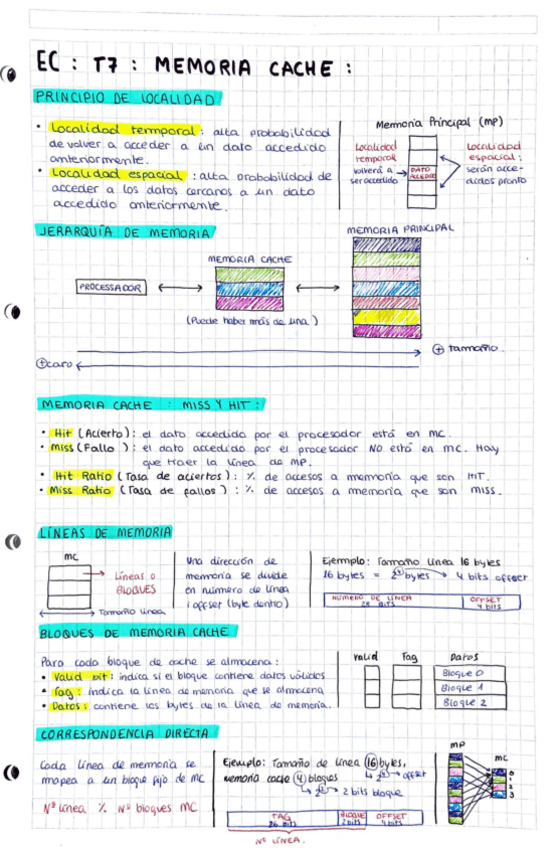 EC : T7 : MEMORIA CACHE :
PRINCIPIO DE LOCALIDAD
• Localidad temporal : alta probabilidad
de volver a acceder a un dato accedido
anteriormente.
• Localidad espacial : alta probabilidad de
acceder a los datos cercanos a un dato
accedido anteriormente.
Memoria Principal (MP)
Localidad
temporal
volverá a
ser accedido
DATO
ACCEDIDO
Localidad
espacial :
serán acce-
didos pronto
JERARQUÍA DE MEMORIA
PROCESSADOR
MEMORIA CACHE
(Puede haber más de una.)
MEMORIA PRINCIPAL
+ tamaño.
+ caro
MEMORIA CACHE : MISS Y HIT :
• Hit (Acierto) : el dato accedido por el procesador está en MC.
• Miss (Fallo) : el dato accedido por el procesador NO está en MC. Hay
que traer la línea de MP.
• Hit Ratio (Tasa de aciertos) : % de accesos a memoria que son HIT.
• Miss Ratio (Tasa de fallos) : % de accesos a memoria que son MISS.
LÍNEAS DE MEMORIA
MC
Líneas o
BLOQUES
Tamaño línea
Una dirección de
memoria se divide
en número de línea
i offset (byte dentro)
Ejemplo : Tamaño línea 16 bytes
16 bytes = 2⁴ bytes → 4 bits offset
NÚMERO DE LÍNEA
28 BITS
OFFSET
4 bits
BLOQUES DE MEMORIA CACHE
Para cada bloque de cache se almacena :
• Valid bit : indica si el bloque contiene datos válidos
• Tag : indica la línea de memoria que se almacena
• Datos : contiene los bytes de la línea de memoria.
Valid Tag Datos
Bloque 0
Bloque 1
Bloque 2
CORRESPONDENCIA DIRECTA
Cada línea de memoria se
mapea a un bloque fijo de MC
Nº línea % Nº bloques MC
Ejemplo : Tamaño de línea 16 bytes,
memoria cache 4 bloques
2⁴ → offset
2² → 2 bits bloque
TAG
26 bits
BLOQUE
2 bits
OFFSET
4 bits
Nº LÍNEA.
MP
MC
0
1
2
3